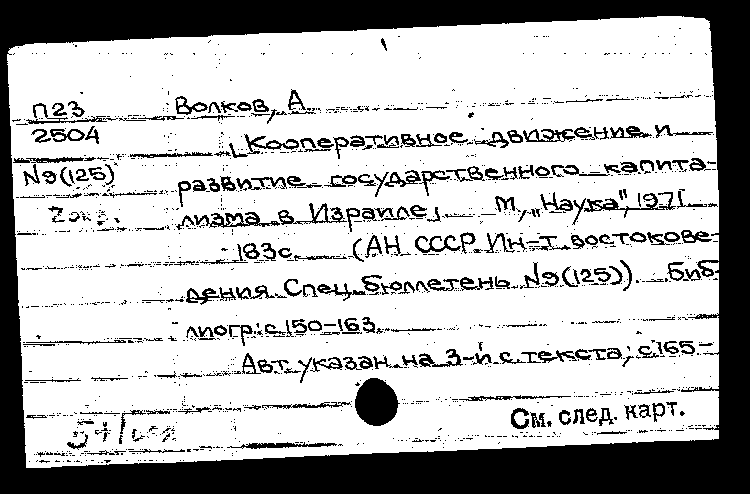 П23 Волков, А
2504 Кооперативное движение и
№9(125) развитие государственного капита-
2экз. лизма в Израиле; М, „Наука", 1971.
183с. (АН СССР. Ин-т востокове-
дения. Спец. бюллетень №9(125)). Биб-
лиогр: с. 150-163.
Авт. указан на 3-й с текста; с165-
См. след. карт.